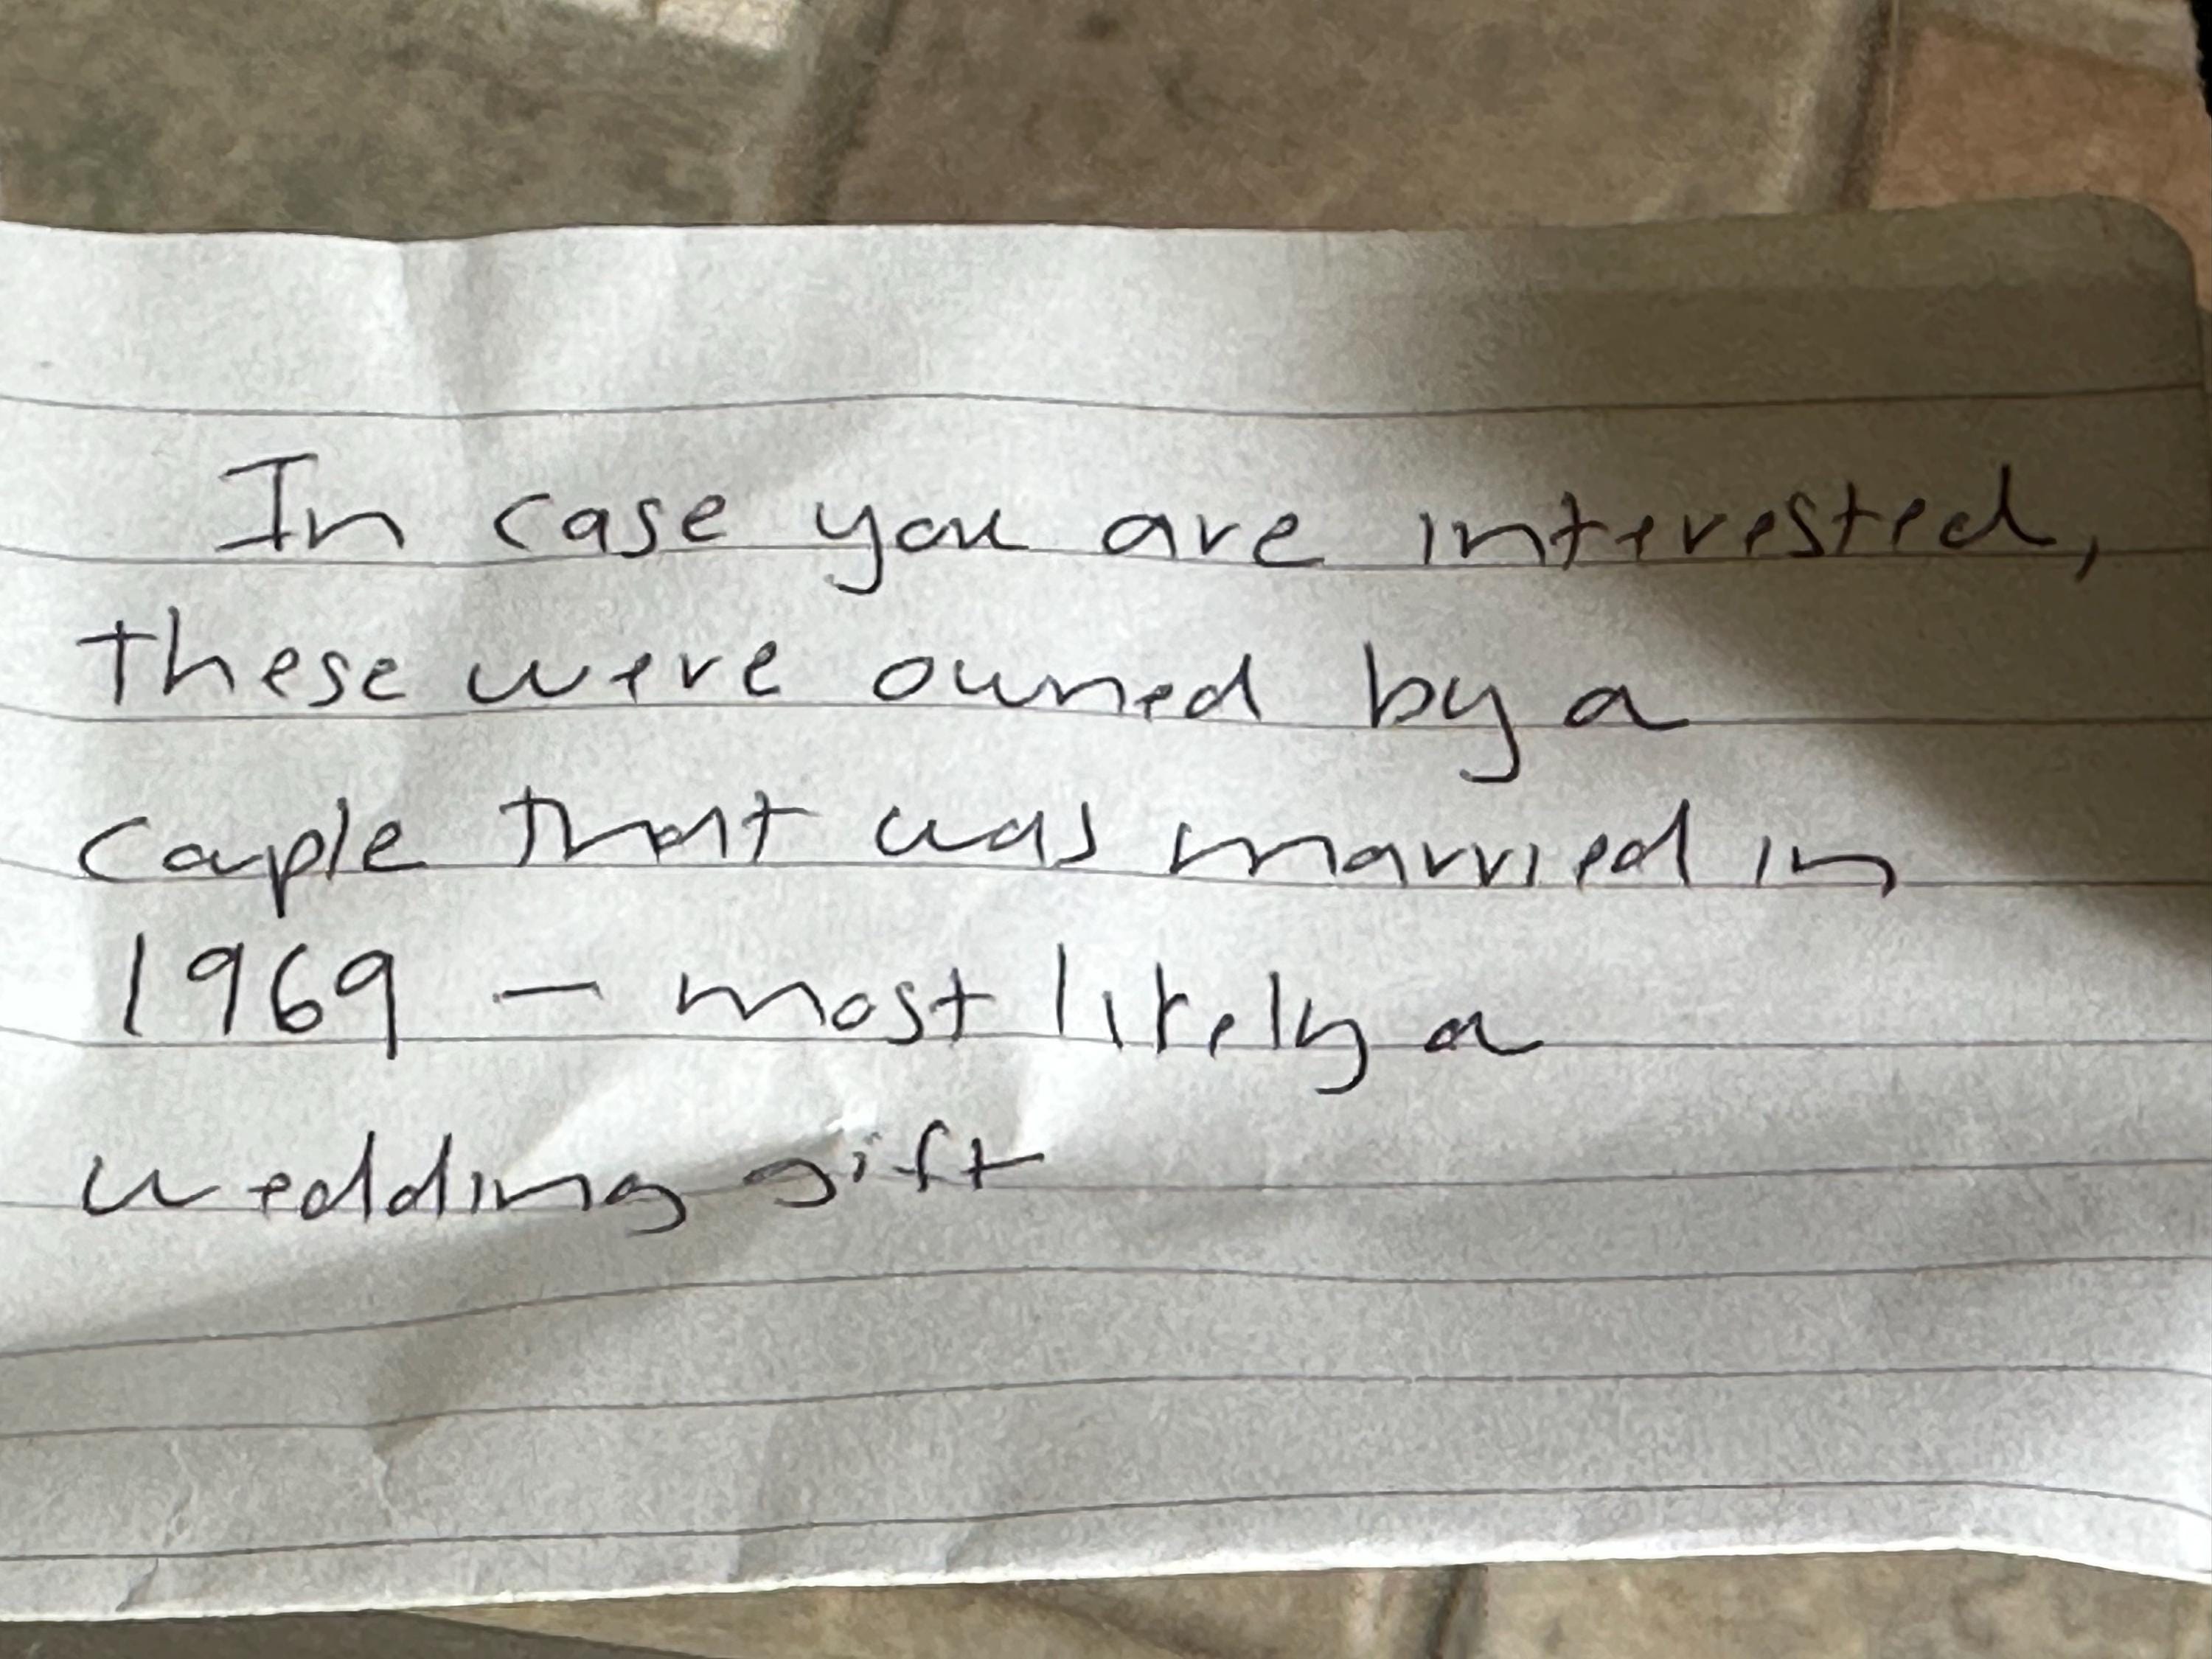 In case you are interested,
these were owned by a
couple that was married in
1969 – most likely a
wedding gift